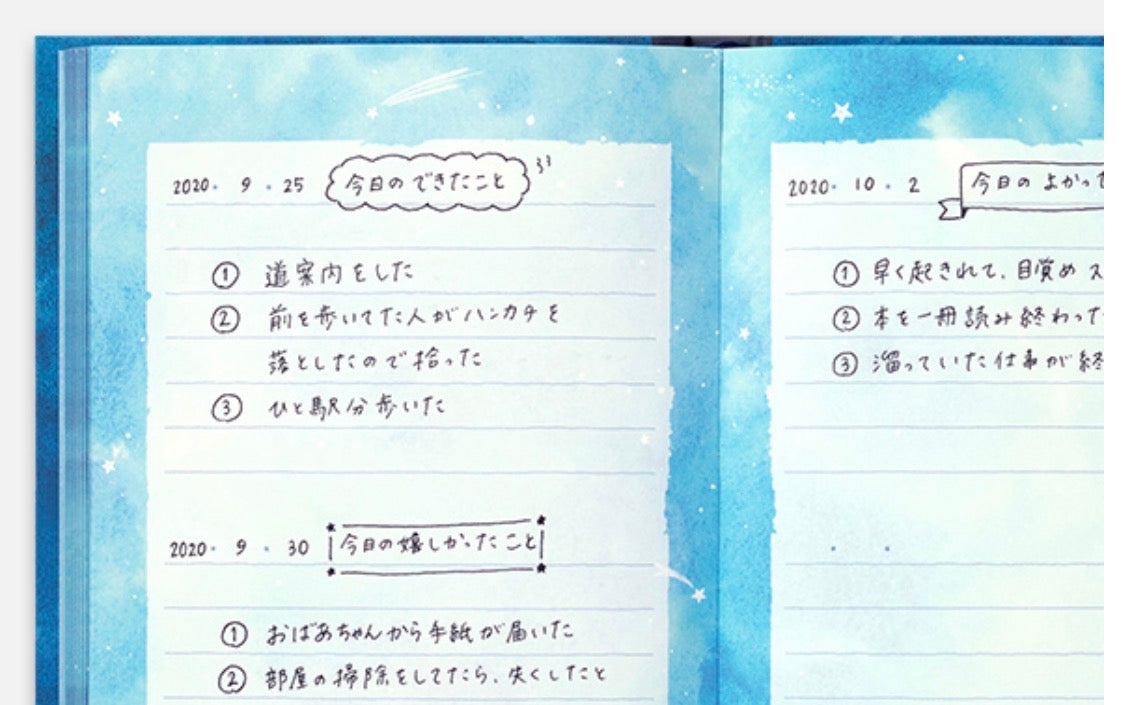 2020・9・25 今日のできたこと
① 道案内をした
② 前を歩いてた人がハンカチを
落としたので拾った
③ ひと駅分歩いた
2020・9・30 今日の嬉しかったこと
① おばあちゃんから手紙が届いた
② 部屋の掃除をしてたら、失くしたと
2020・10・2 今日のよかった
① 早く起きれて、目覚めス
② 本を一冊読み終わった
③ 溜っていた仕事が終